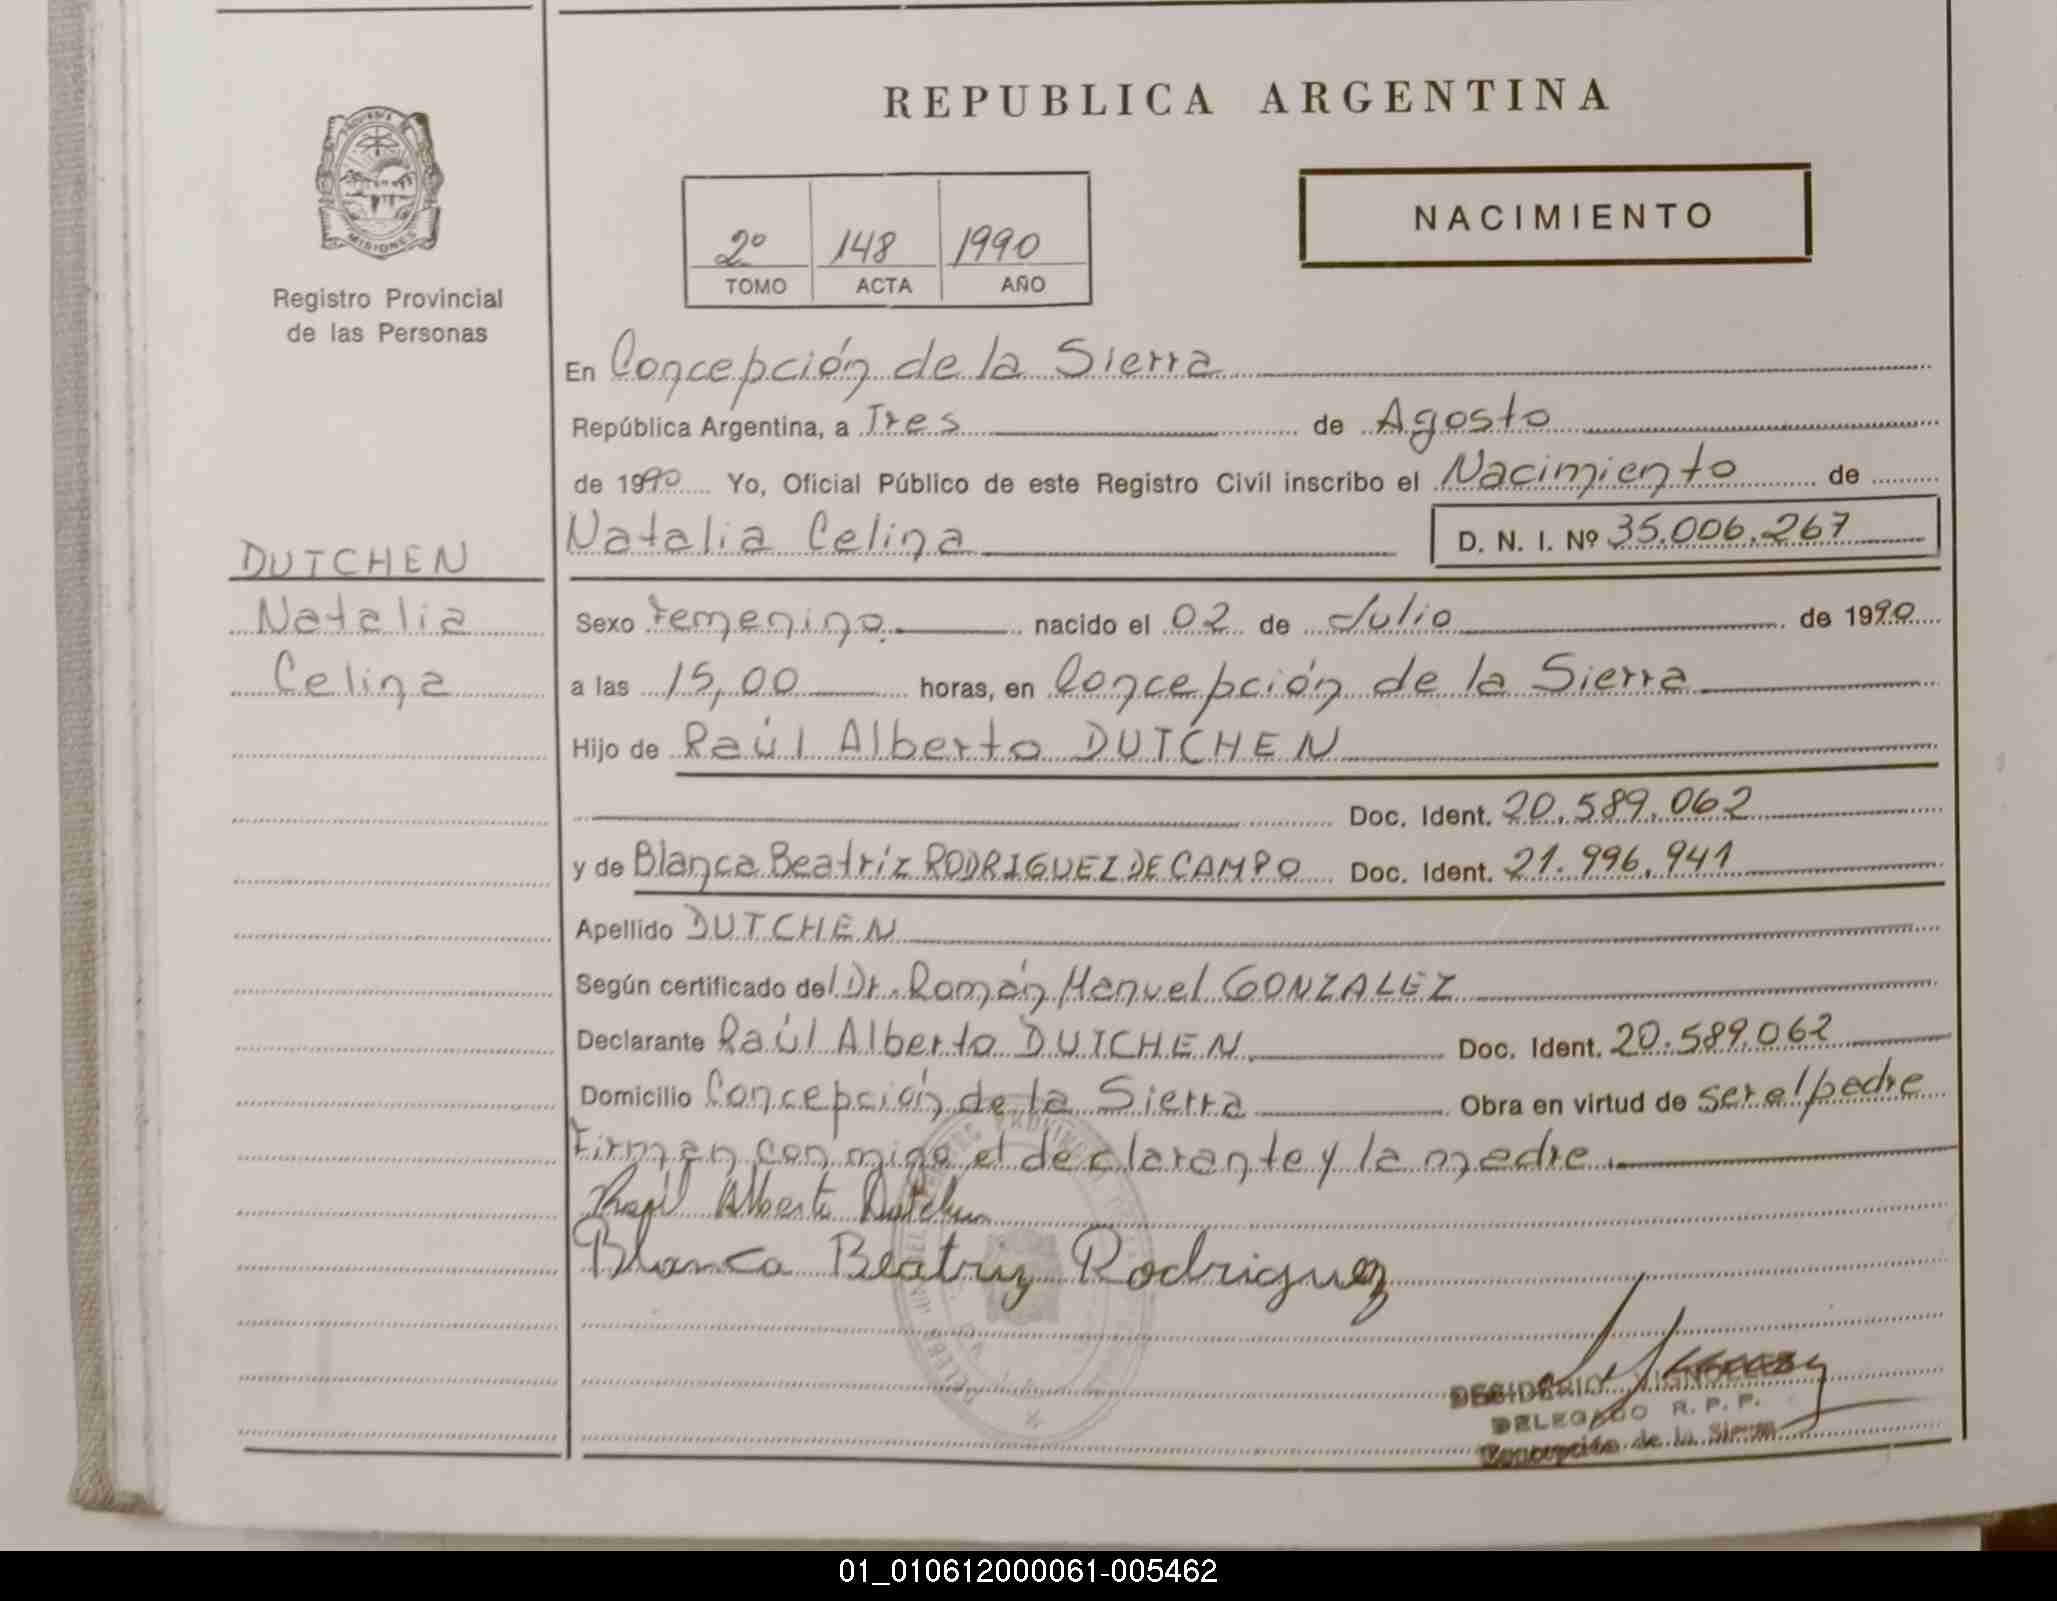 REPUBLICA ARGENTINA
PROVINCIA DE
MISIONES
Registro Provincial
de las Personas
2º 148 1990
TOMO ACTA AÑO
NACIMIENTO
En Concepción de la Sierra
República Argentina, a Tres de Agosto
de 1990 Yo, Oficial Público de este Registro Civil inscribo el Nacimiento de
Natalia Celina D. N. I. Nº 35.006.267
DUTCHEN
Natalia
Celina
Sexo Femenino. nacido el 02 de Julio de 1990
a las 15,00 horas, en Concepción de la Sierra
Hijo de Raúl Alberto DUTCHEN
Doc. Ident. 20.589.062
y de Blanca Beatríz RODRIGUEZ DE CAMPO Doc. Ident. 21.996.941
Apellido DUTCHEN
Según certificado del Dr. Román Manuel GONZALEZ
Declarante Raúl Alberto DUTCHEN. Doc. Ident. 20.589.062
Domicilio Concepción de la Sierra Obra en virtud de ser el padre
Firman conmigo el declarante y la madre.
Raúl Alberto Dutchen
Blanca Beatriz Rodriguez
DESIDERIO
DELEGADO R. P. P.
Concepción de la Sierra
01_010612000061-005462